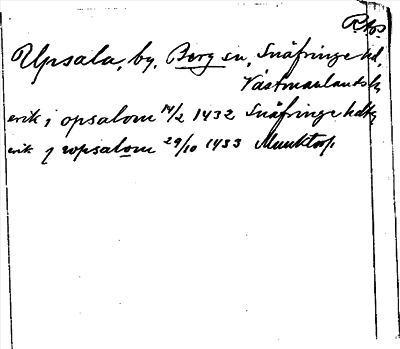 R.A.
Upsala, by, Berg sn, Snäfringe hd,
Västmanlands l.
erik i opsalom 14/2 1432 Snäfringe hdtg
erik j wpsalom 29/10 1433 Munktorp